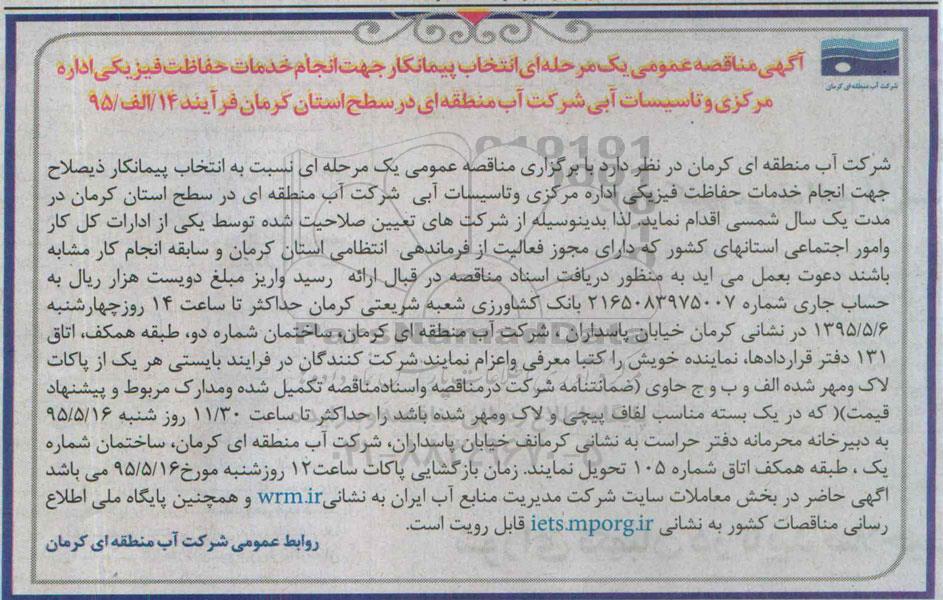 آگهی مناقصه عمومی یک مرحله ای انتخاب پیمانکار جهت انجام خدمات حفاظت فیزیکی اداره
مرکزی و تاسیسات آبی شرکت آب منطقه ای در سطح استان کرمان فرآیند ۱۴/الف/۹۵
شرکت آب منطقه ای کرمان
شرکت آب منطقه ای کرمان در نظر دارد با برگزاری مناقصه عمومی یک مرحله ای نسبت به انتخاب پیمانکار ذیصلاح
جهت انجام خدمات حفاظت فیزیکی اداره مرکزی وتاسیسات آبی شرکت آب منطقه ای در سطح استان کرمان در
مدت یک سال شمسی اقدام نماید. لذا بدینوسیله از شرکت های تعیین صلاحیت شده توسط یکی از ادارات کل کار
وامور اجتماعی استانهای کشور که دارای مجوز فعالیت از فرماندهی انتظامی استان کرمان و سابقه انجام کار مشابه
باشند دعوت بعمل می اید به منظور دریافت اسناد مناقصه در قبال ارائه رسید واریز مبلغ دویست هزار ریال به
حساب جاری شماره ۲۱۶۵۰۸۳۹۷۵۰۰۷ بانک کشاورزی شعبه شریعتی کرمان حداکثر تا ساعت ۱۴ روزچهارشنبه
۱۳۹۵/۵/۶ در نشانی کرمان خیابان پاسداران - شرکت آب منطقه ای کرمان، ساختمان شماره دو، طبقه همکف، اتاق
۱۳۱ دفتر قراردادها، نماینده خویش را کتبا معرفی واعزام نمایند شرکت کنندگان در فرایند بایستی هر یک از پاکات
لاک ومهر شده الف و ب و ج حاوی (ضمانتنامه شرکت درمناقصه واسنادمناقصه تکمیل شده ومدارک مربوط و پیشنهاد
قیمت)( که در یک بسته مناسب لفاف پیچی و لاک ومهر شده باشد را حداکثر تا ساعت ۱۱/۳۰ روز شنبه ۹۵/۵/۱۶
به دبیرخانه محرمانه دفتر حراست به نشانی کرمانف خیابان پاسداران، شرکت آب منطقه ای کرمان، ساختمان شماره
یک ، طبقه همکف اتاق شماره ۱۰۵ تحویل نمایند. زمان بازگشایی پاکات ساعت۱۲ روزشنبه مورخ۹۵/۵/۱۶ می باشد
اگهی حاضر در بخش معاملات سایت شرکت مدیریت منابع آب ایران به نشانیwrm.ir و همچنین پایگاه ملی اطلاع
رسانی مناقصات کشور به نشانی iets.mporg.ir قابل رویت است.
روابط عمومی شرکت آب منطقه ای کرمان
ParsNamadData